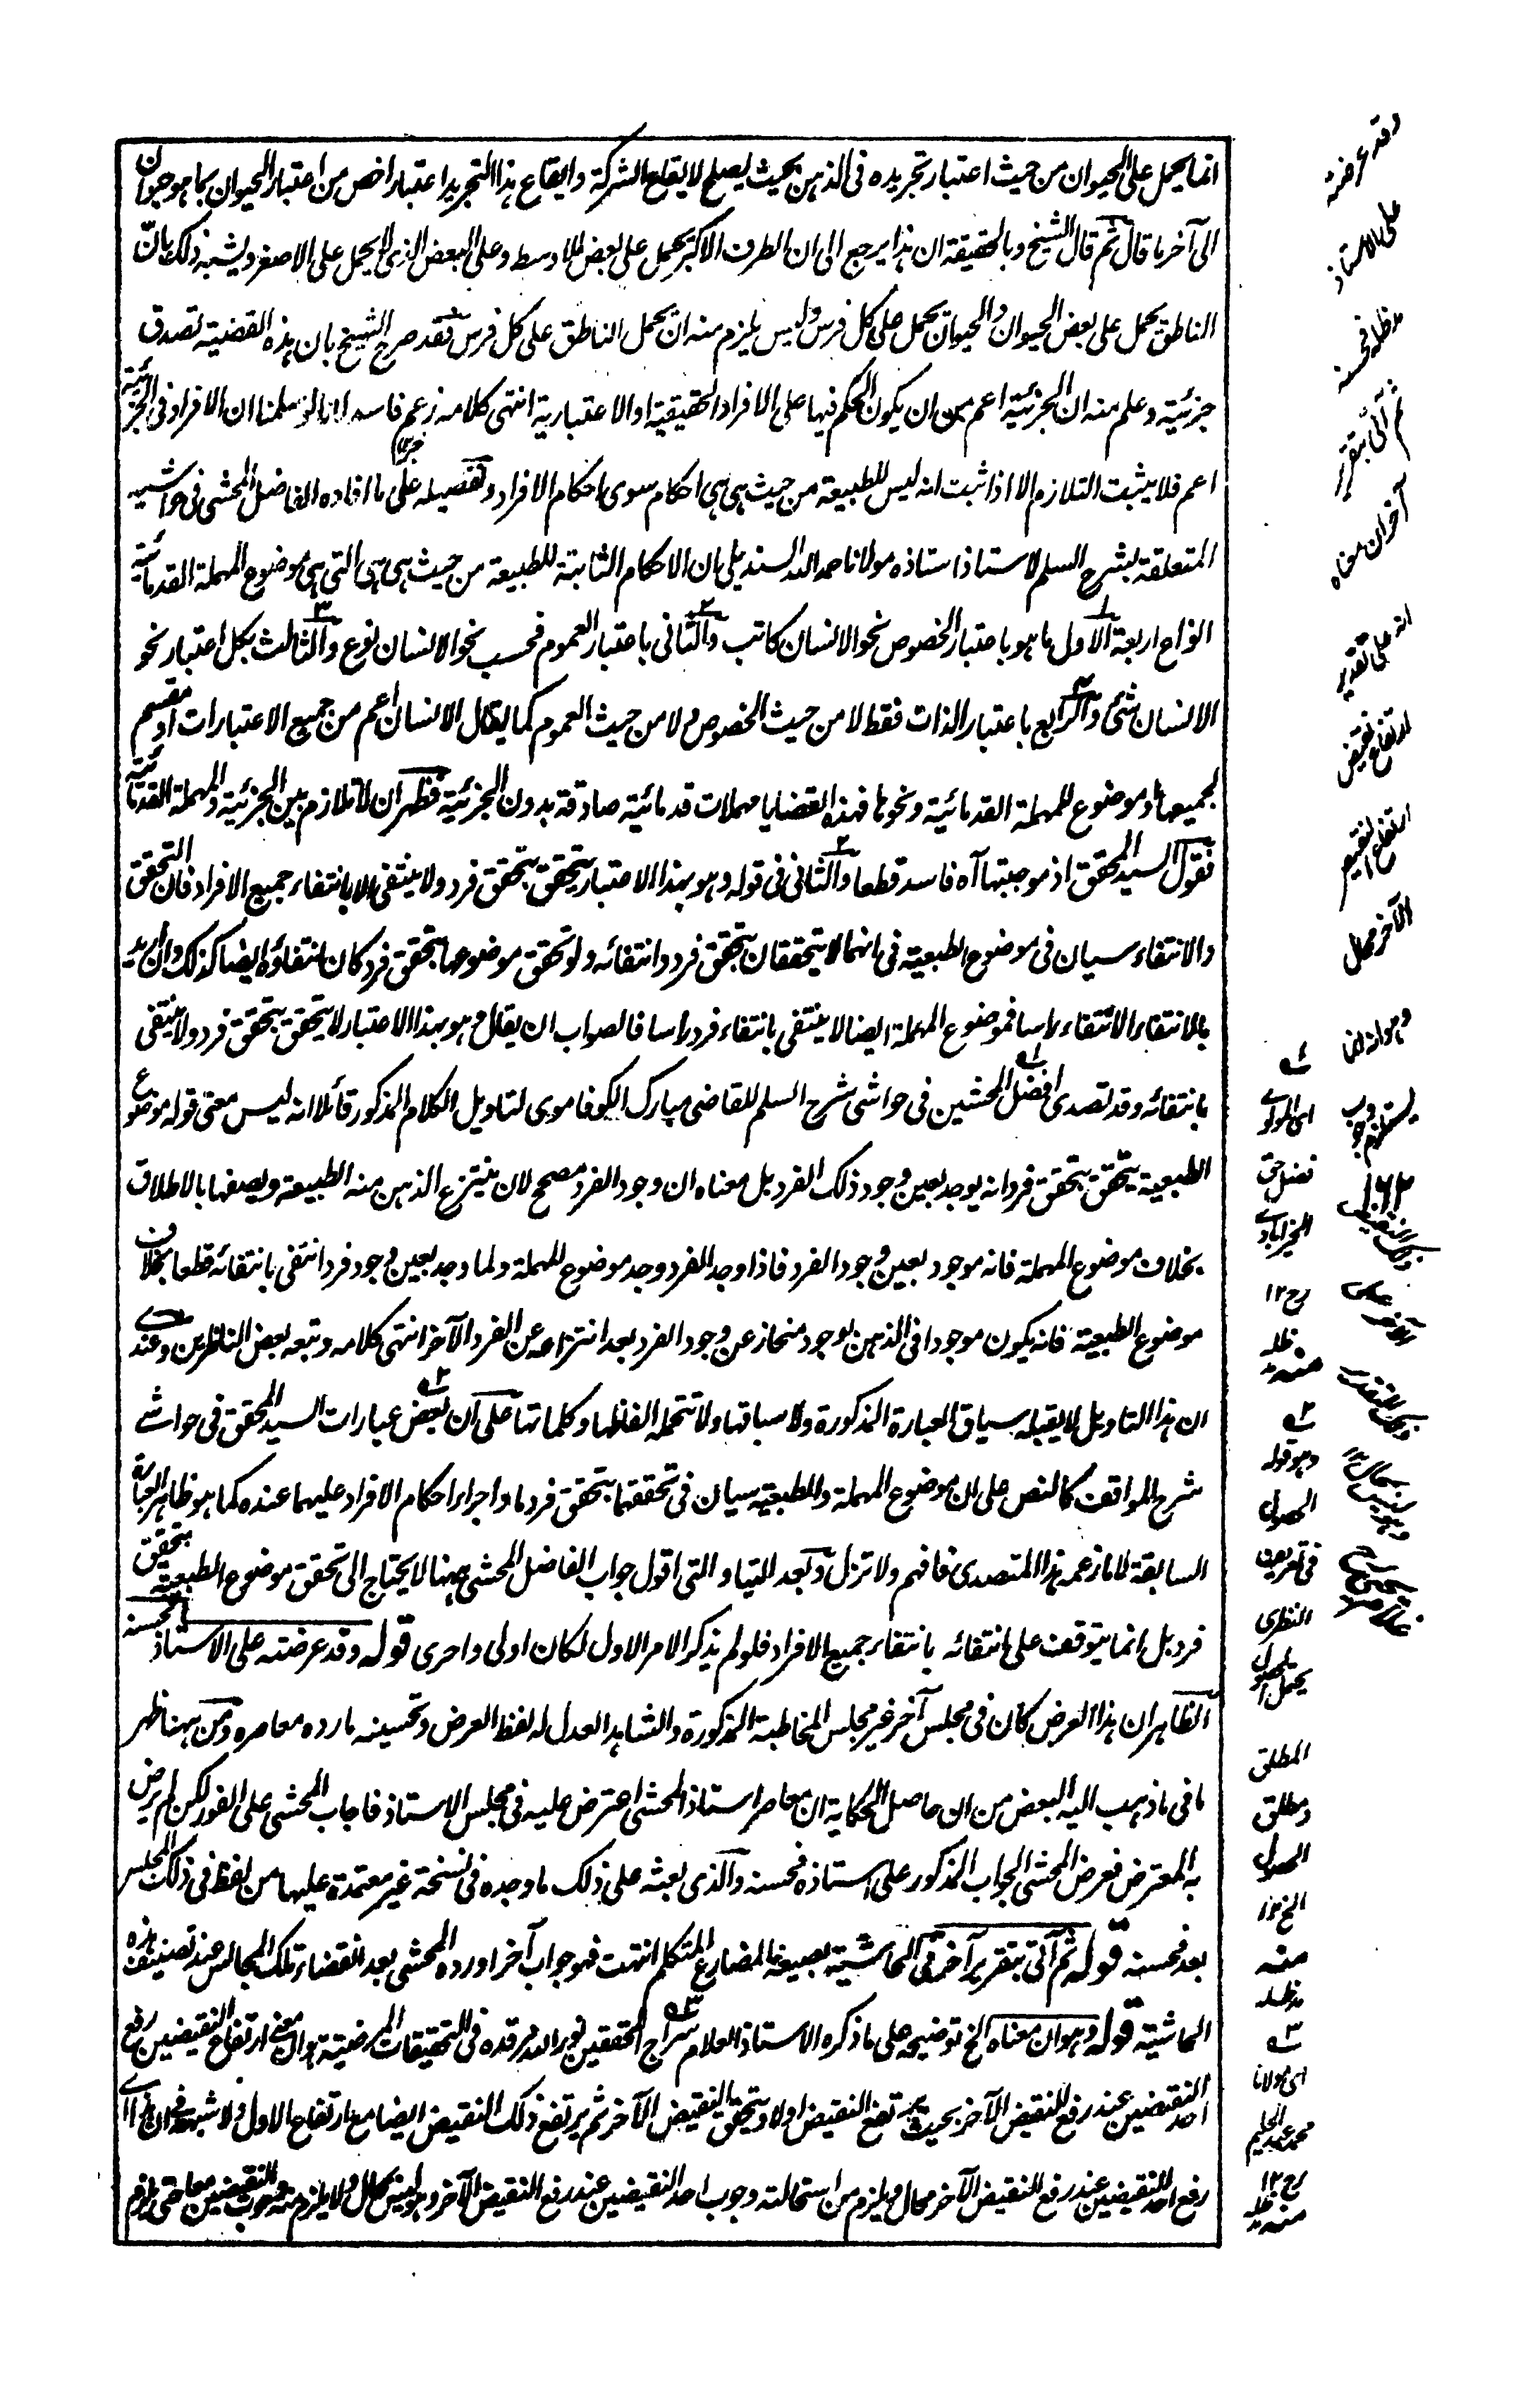 انما يحمل على الحيوان من حيث اعتبار تجريده فى الذهن بحيث يصلح لايقاع الشركة وايقاع هذا التجريد اعتبار اخص من اعتبار الحيوان بما هو حيوان
الى آخر ما قال ثم قال الشيخ وبالحقيقة ان هذا يرجع الى ان الطرف الاكبر يحمل على بعض الاوسط وعلى البعض الذى لا يحمل على الاصغر ويشبه ذلك بان
الناطق يحمل على بعض الحيوان والحيوان يحمل على كل فرس وليس يلزم منه ان يحمل الناطق على كل فرس فقد صرح الشيخ بان هذه القضية تصدق
جزئية وعلم منه ان الجزئية اعم من ان يكون الحكم فيها على الافراد الحقيقية او الاعتبارية انتهى كلامه زعم فاسد لانا لو سلمنا ان الافراد فى الجزئية
اعم فلا يثبت التلازم الا اذا ثبت انه ليس للطبيعة من حيث هى هى احكام سوى احكام الافراد وتفصيله على ما افاده الفاضل المحشى فى حواشيه
المتعلقة بشرح السلم لاستاذ استاذه مولانا حمد الله السنديلى بان الاحكام الثابتة للطبيعة من حيث هى هى التى هى موضوع المهملة القدمائية
انواع اربعة الاول ما هو باعتبار الخصوص نحو الانسان كاتب والثانى باعتبار العموم فحسب نحو الانسان نوع والثالث بكل اعتبار نحو
الانسان شئ والرابع باعتبار الذات فقط لا من حيث الخصوص ولا من حيث العموم كما يقال الانسان اعم من جميع الاعتبارات او مقسم
لجميعها او موضوع للمهملة القدمائية ونحوها فهذه القضايا مهملات قدمائية صادقة بدون الجزئية فظهر ان لا تلازم بين الجزئية والمهملة القدمائية
فقول السيد المحقق اذ موجبتها آه فاسد قطعا والثانى فى قوله وهو بهذا الاعتبار يتحقق بتحقق فرد ولا ينتفى الا بانتفاء جميع الافراد فان التحقق
والانتفاء سيان فى موضوع الطبعية فى انهما لا يتحققان بتحقق فرد وانتفائه ولو تحقق موضوعها بتحقق فرد كان انتفاؤه ايضا كذلك وان اريد
بالانتفاء الانتفاء راسا فموضوع المهملة ايضا لا ينتفى بانتفاء فرد راسا فالصواب ان يقال وهو بهذا الاعتبار لا يتحقق بتحقق فرد ولا ينتفى
بانتفائه وقد تصدى افضل المحشين فى حواشى شرح السلم للقاضى مبارك الكوفاموى لتاويل الكلام المذكور قائلا انه ليس معنى قوله موضوع
الطبعية يتحقق بتحقق فرد انه يوجد بعين وجود ذلك الفرد بل معناه ان وجود الفرد مصحح لان ينتزع الذهن منه الطبيعة ويصفها بالاطلاق
بخلاف موضوع المهملة فانه موجود بعين وجود الفرد فاذا وجد الفرد وجد موضوع المهملة ولما وجد بعين وجود فرد انتفى بانتفائه قطعا بخلاف
موضوع الطبعية فانه يكون موجودا فى الذهن بوجود منحاز عن وجود الفرد بعد انتزاعه عن الفرد الآخر انتهى كلامه وتبعه بعض الناظرين وعندى
ان هذا التاويل لا يقبله سياق العبارة المذكورة ولا سباقها ولا تتحمله الفاظها وكلماتها على ان بعض عبارات السيد المحقق فى حواشى
شرح المواقف كالنص على ان موضوع المهملة والطبعية سيان فى تحققهما بتحقق فرد ما واجراء احكام الافراد عليهما عنده كما هو ظاهر العبارة
السابقة لا ما زعمه هذا المتصدى فافهم ولا تزل وبعد اللتيا والتى اقول جواب الفاضل المحشى ههنا لا يحتاج الى تحقق موضوع الطبعية بتحقق
فرد بل انما يتوقف على انتفائه بانتفاء جميع الافراد فلو لم يذكر الامر الاول لكان اولى واحرى قوله وقد عرضته على الاستاذ فحسنه
الظاهر ان هذا العرض كان فى مجلس آخر غير مجلس المخاطبة المذكورة والشاهد العدل له لفظ العرض وتحسينه ما رده معاصره ومن ههنا ظهر
ما فى ما ذهب اليه البعض من ان حاصل الحكاية ان معاصر استاذ المحشى اعترض عليه فى مجلس الاستاذ فاجاب المحشى على الفور لكن لم يرض
به المعترض فعرض المحشى الجواب المذكور على استاذه فحسنه والذى بعثه على ذلك ما وجده فى نسخة غير معتمدة عليها من لفظ فى ذلك المجلس
بعد فحسنه قوله ثم آتى بتقرير آخر فى الحاشية بصيغة المضارع المتكلم انتهت فهو جواب آخر اورده المحشى بعد انقضاء تلك المجالس عند تصنيف هذه
الحاشية قوله وهو ان معناه الخ توضيحه على ما ذكره الاستاذ العلام سراج المحققين نور الله مرقده فى التحقيقات المرضية هو ان معنى ارتفاع النقيضين رفع
احد النقيضين عند رفع النقيض الآخر بحيث يرتفع النقيض اولا ويتحقق النقيض الآخر ثم يرتفع ذلك النقيض ايضا مع ارتفاع الاول ولا شبهة فى ان هذا اى
رفع احد النقيضين عند رفع النقيض الآخر محال ويلزم من استحالته وجوب احد النقيضين عند رفع النقيض الآخر وهو ليس بمحال ولا يلزم منه وجوب النقيضين معا حتى يلزم
وقد عرضته
على الاستاذ
مد ظله فحسنه
ثم آتى بتقرير
آخر ان معناه
انه على تقدير
ارتفاع نقيض
ارتفاع النقيض
الآخر محال
وهو انما
يستلزم وجوب
احد النقيضين
الآخر على
ذلك التقدير
وهو ليس بمحال
١ه
اى المولوى
فضل حق
الخيرابادى
رح ١٢
منه مد ظله
٢ه
وهو قوله
الحصول
فى تعريف
النظرى
يحتمل الحصول
المطلق
ومطلق
الحصول
الخ ١٢
منه
مد ظله
٣ه
اى مولانا
محمد عبد الحليم
رح ١٢
منه مد ظله